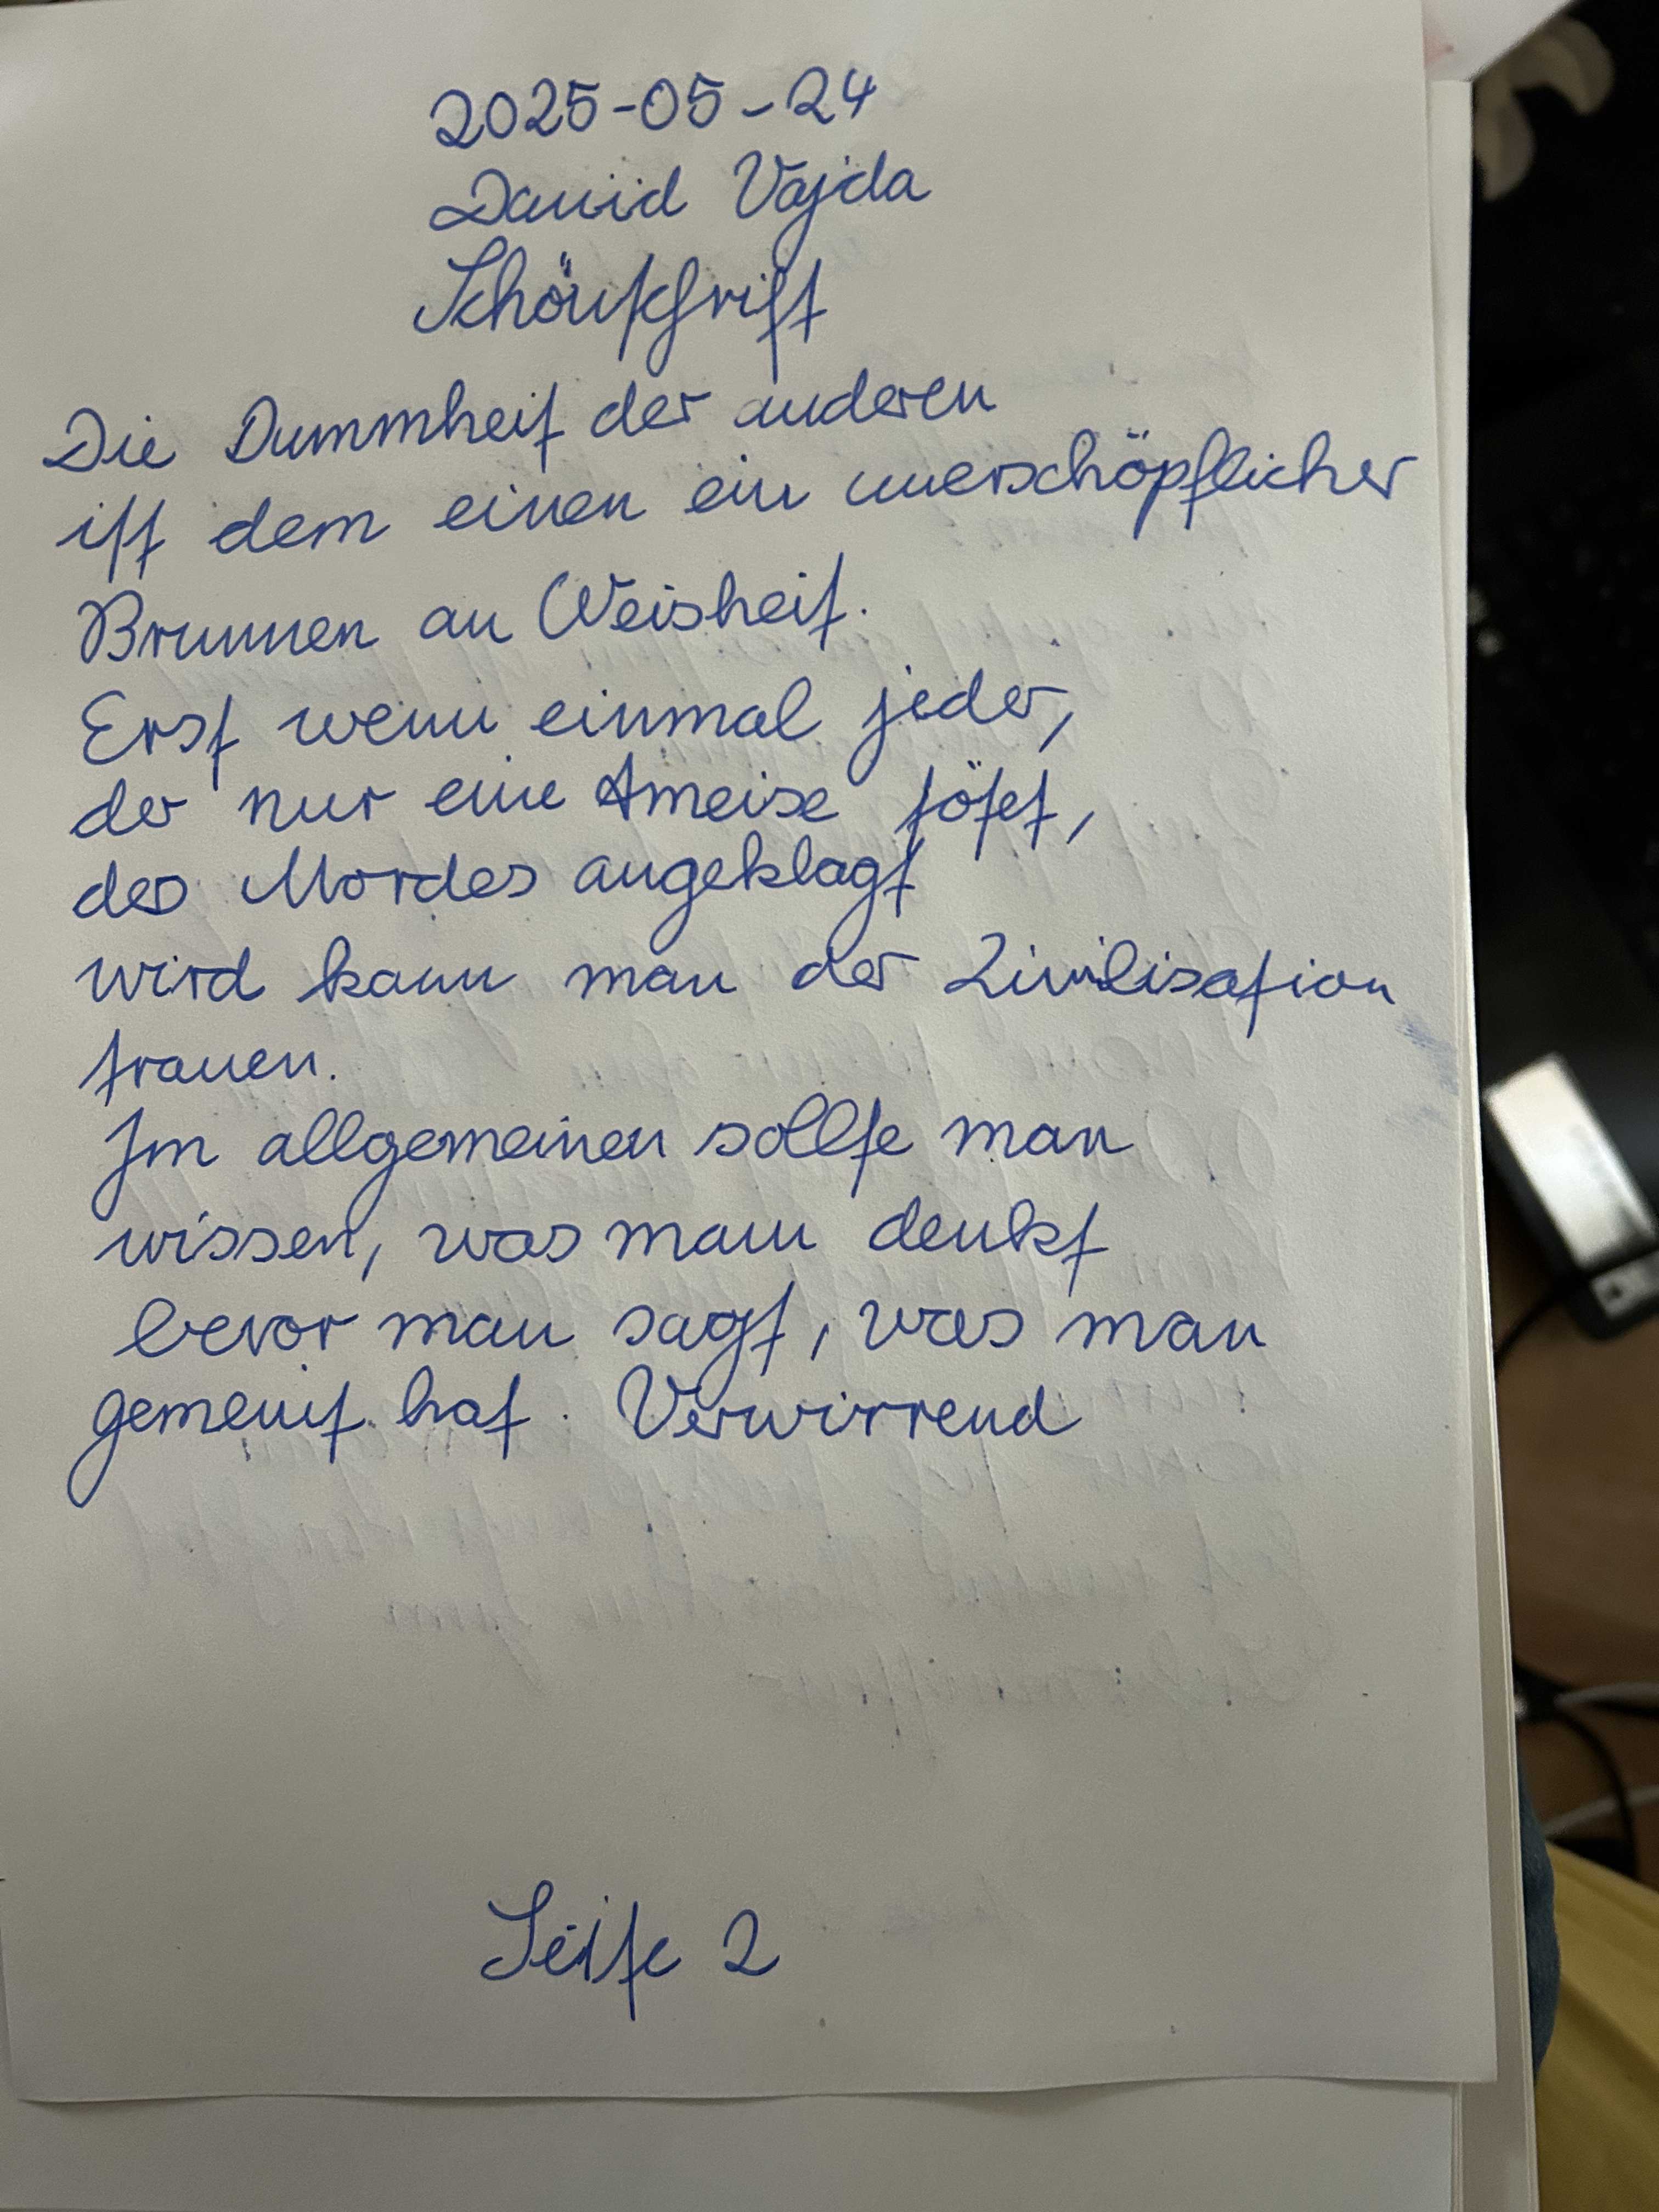 2025-05-24
David Vajda
Schönschrift
Die Dummheit der anderen
ist dem einen ein unerschöpflicher
Brunnen an Weisheit.
Erst wenn einmal jeder,
der nur eine Ameise tötet,
des Mordes angeklagt
wird kann man der Zivilisation
trauen.
Im allgemeinen sollte man
wissen, was man denkt
bevor man sagt, was man
gemeint hat. Verwirrend
Seite 2